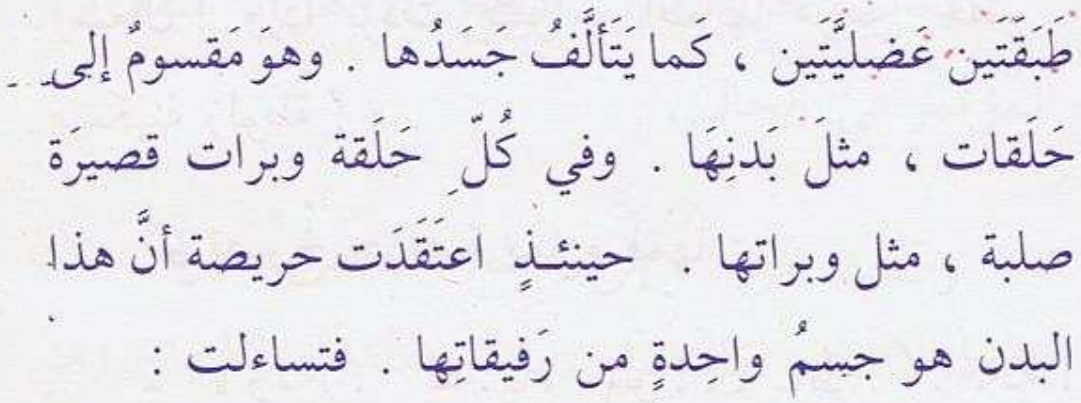 طَبَقَتَين عَضليَّتَين ، كَما يَتَألَّفُ جَسَدُها . وهوَ مَقسومٌ إلى
حَلَقات ، مثلَ بَدنِهَا . وفي كُلّ حَلَقة وبرات قصيرَة
صلبة ، مثل وبراتها . حينئـذٍ اعتَقَدَت حريصة أنَّ هذا
البدن هو جسمُ واحِدةٍ من رَفيقاتِها . فتساءلت :